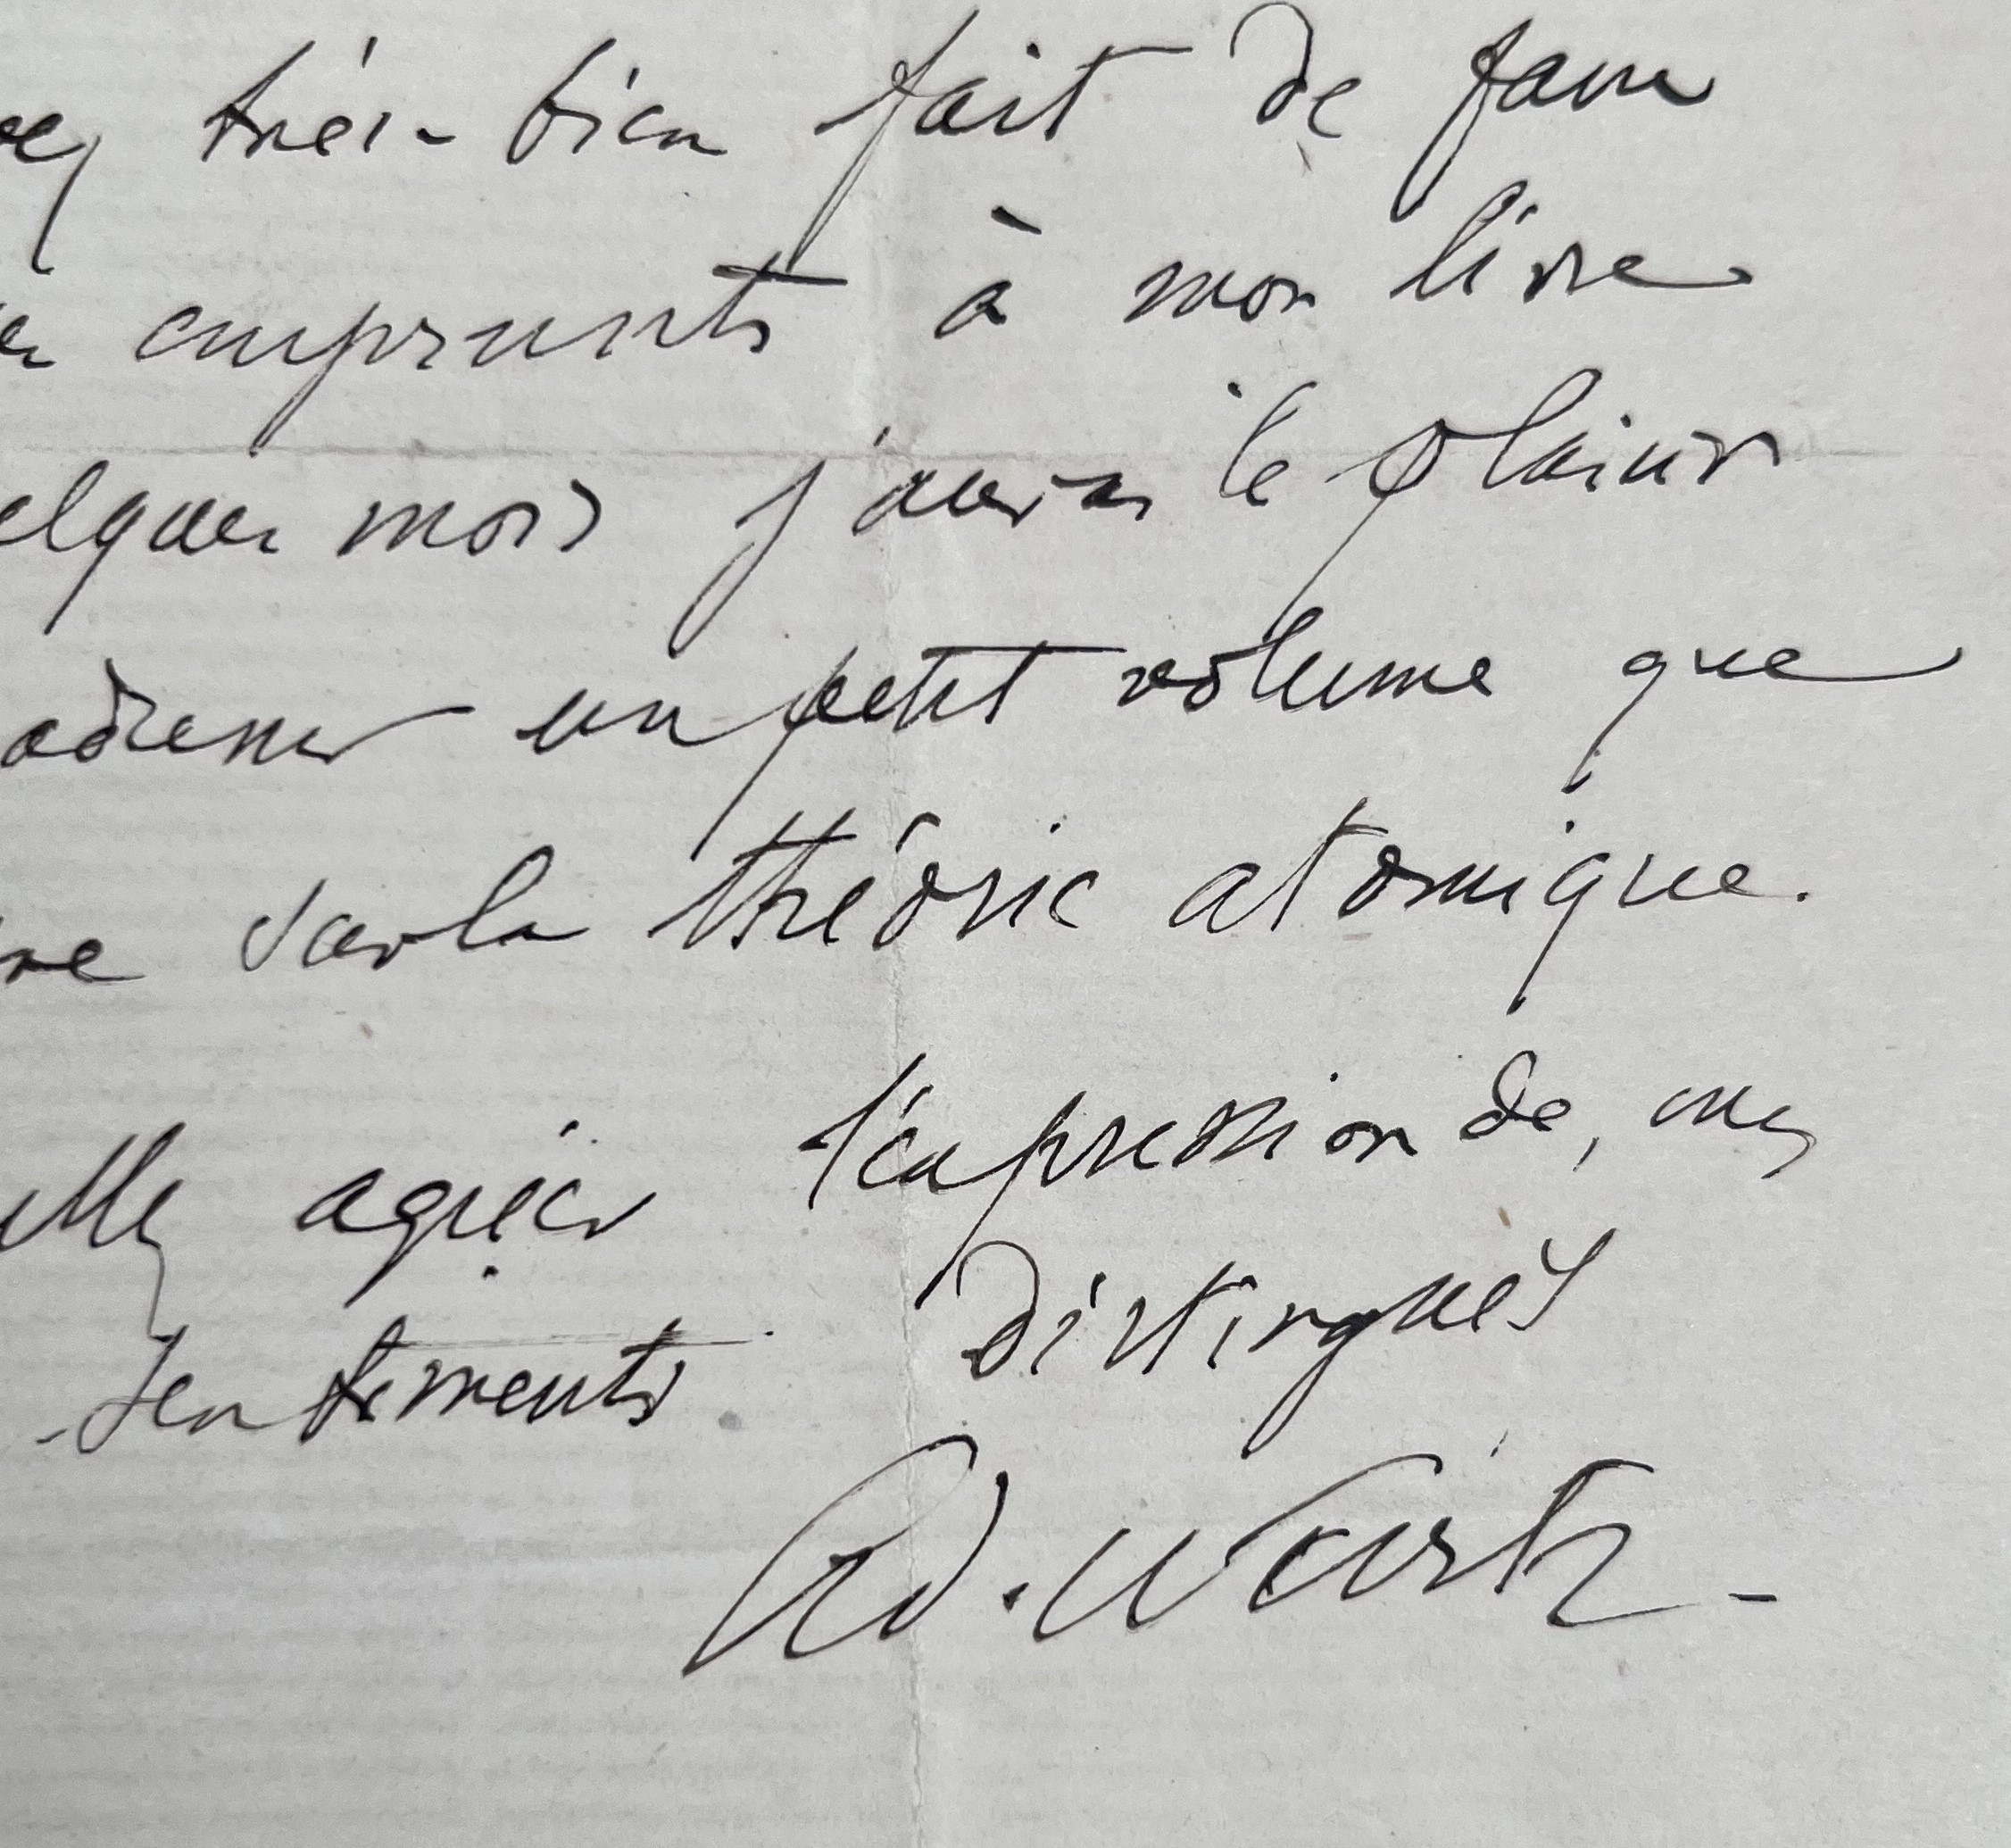 ez très-bien fait de faire
emprunts à mon livre
elques mois j'aurai le plaisir
adresser un petit volume que
re sur la théorie atomique.
illez agréer l'expression de mes
sentiments distingués
Ad. Wurtz -